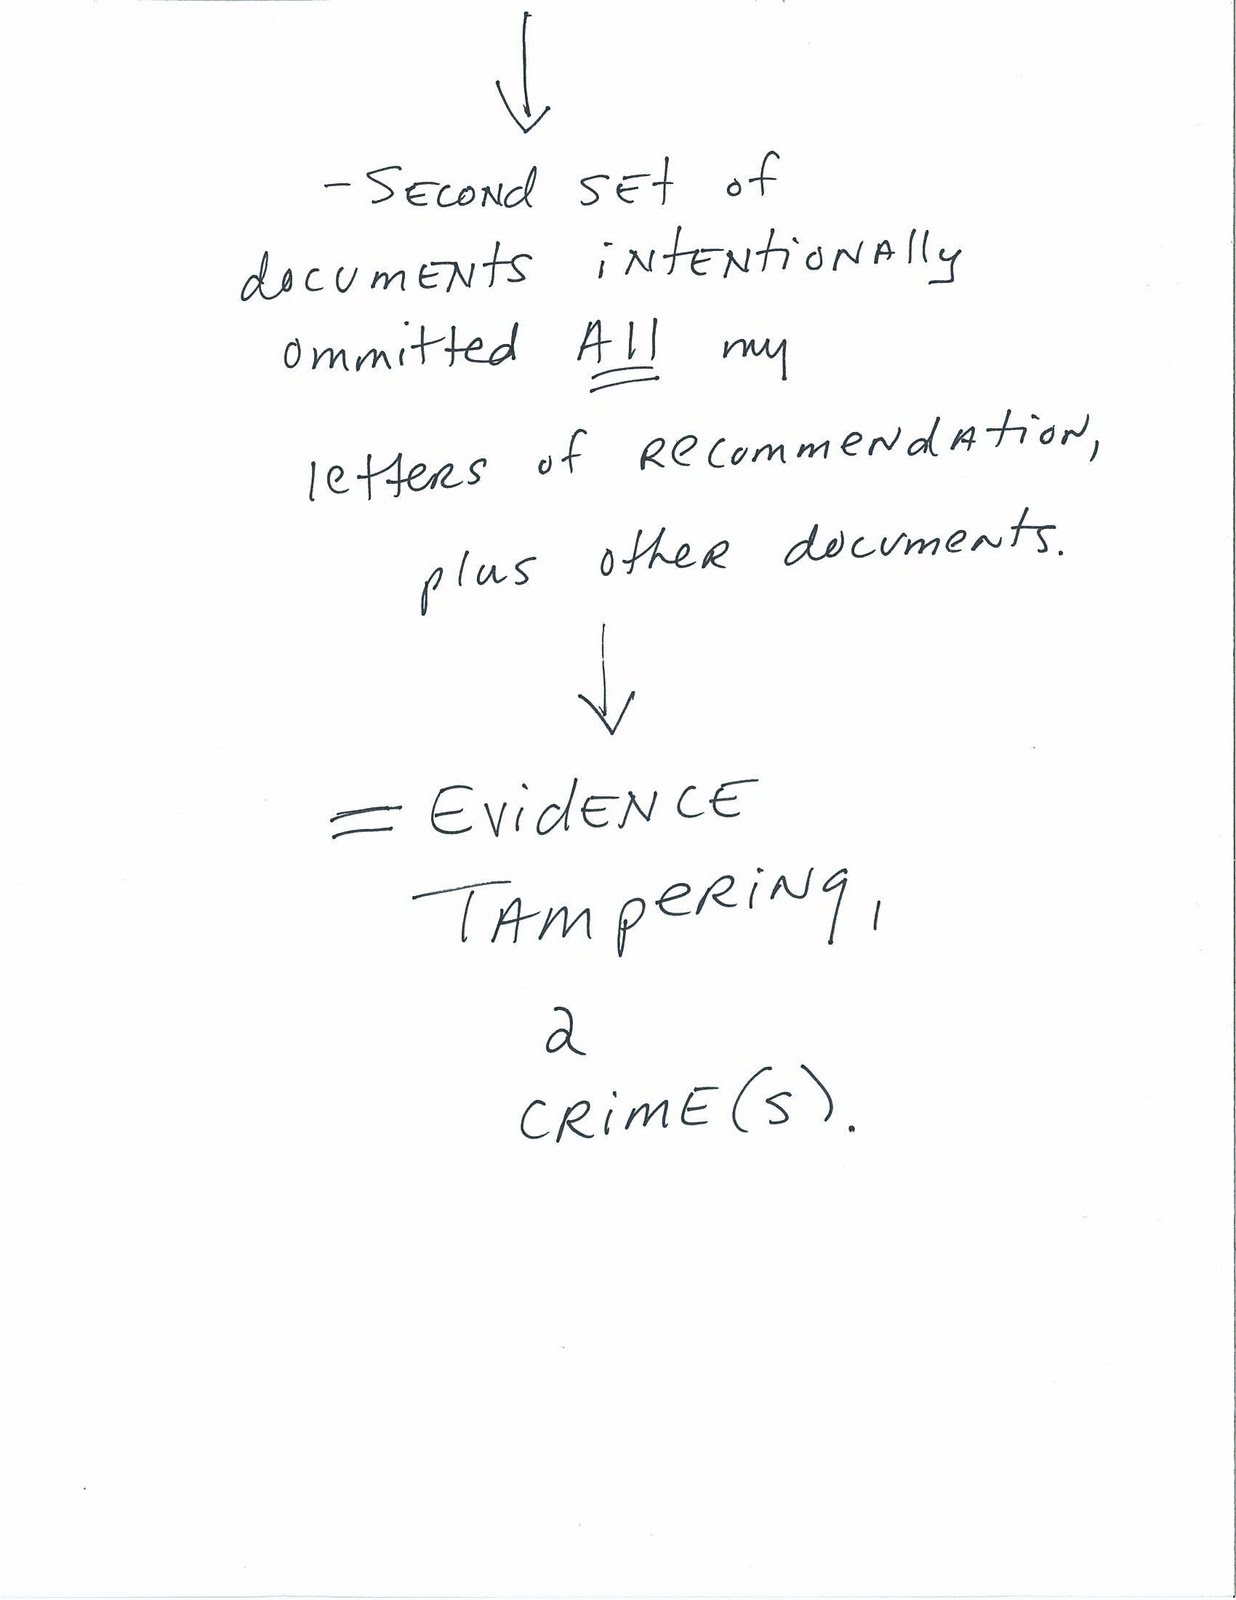 - Second set of
documents intentionally
ommitted All my
letters of recommendation,
plus other documents.
= Evidence
Tampering,
a
crime(s).